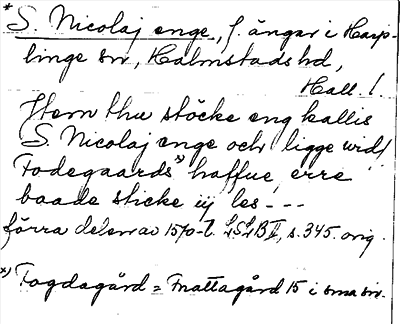 * S. Nicolaj enge, f. ängar i Harp-
linge sn, Halmstads hd,
Hall. l.
Item thu stöcke eng kallis
S. Nicolaj enge och ligge wid/
Fodegaards *) haffue, erre
baade sticke iij les - - -
förra delen av 1570-t. s. 345. orig.
*) Fogdagård = Mattagård 15 i sma sn.